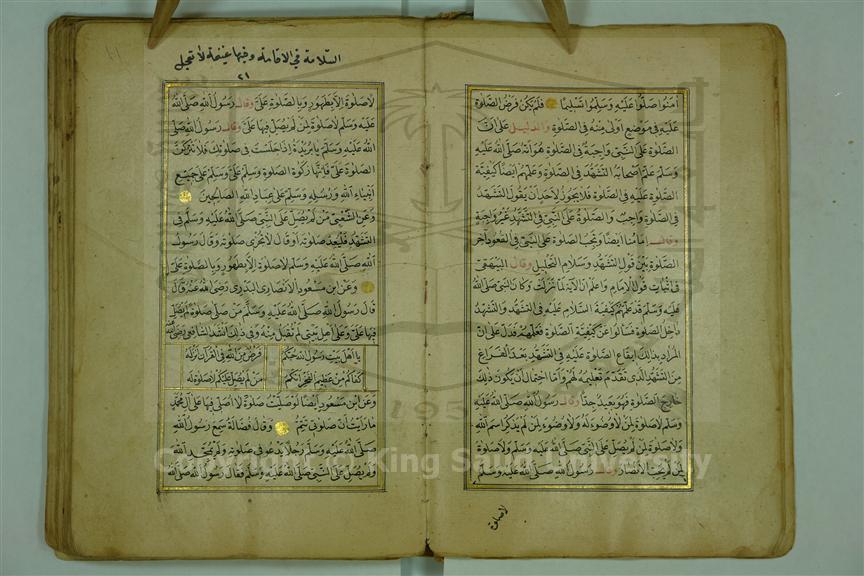 آمنوا صلّوا عليه وسلّموا تسليما فلم يكن فرض الصلوة
عليه في موضع أولى منه في الصلوة والدليل على أن
الصلوة على النبي واجبة في الصلوة هو أنه صلى الله عليه
وسلم علم أصحابه التشهد في الصلوة وعلمهم أيضا كيفية
الصلوة عليه في صلوة فلا يجوز لأحد أن يقول التشهد
في الصلوة واجب والصلوة على النبي في التشهد غير واجبة
وقال إمامنا أيضا وتجب الصلوة على النبي في القعود آخر
الصلوة بين قول التشهد وسلام التحليل وقال البيهقي
في إثبات قول الإمام واعلم أن الآية لما نزلت وكان النبي صلى الله
عليه وسلم قد علمهم كيفية السلام عليه في التشهد والتشهد
داخل الصلوة فسألوا عن كيفية الصلوة فعلمهم فدل على أن
المراد بذلك إيقاع الصلوة عليه في التشهد بعد الفراغ
من التشهد الذي تقدم تعليمه لهم وأما احتمال أن يكون ذلك
خارج الصلوة فهو بعيد جدا وقال رسول الله صلى الله عليه
وسلم لا صلوة لمن لا وضوء له ولا وضوء لمن لم يذكر اسم الله
ولا صلوة لمن لم يصل على النبي صلى الله عليه وسلم ولا صلوة
لمن لم يحب الأنصار وقال رسول الله صلى الله عليه وسلم
لا صلوة
السلامة في الاقامة وفيها غنيمة لا تعجل
٢١
لا صلوة إلا بطهور وبالصلوة علي وقال رسول الله صلى الله
عليه وسلم لا صلوة لمن لم يصل فيها علي وقال رسول الله صلى
الله عليه وسلم يا بريدة إذا جلست في صلوتك فلا تتركن
الصلوة علي فإنها زكوة الصلوة وسلم علي وسلم على جميع
أنبياء الله ورسله وسلم على عباد الله الصالحين
وعن الشعبي من لم يصل على النبي صلى الله عليه وسلم في
التشهد فليعد صلوته أو قال لا تجزى صلوته وقال رسول
الله صلى الله عليه وسلم لا صلوة إلا بطهور وبالصلوة علي
وعن ابن مسعود الأنصاري البدري رضي الله عنه قال
قال رسول الله صلى الله عليه وسلم من صلى صلوة لم يصل
فيها علي وعلى أهل بيتي لم تقبل منه وفي ذلك أنشد الشافعي رضي الله
يا أهل بيت رسول الله حبكم فرض من الله في القرآن أنزله
كفاكم من عظيم الفخر أنكم من لم يصل عليكم لا صلوة له
وعن ابن مسعود أيضا لو صليت صلوة لا أصلي فيها على آل محمد
ما رأيت أن صلوتي تتم وقال فضالة سمع رسول الله
صلى الله عليه وسلم رجلا يدعو في صلوته ولم يمجد الله
ولم يصل على النبي صلى الله عليه وسلم فقال رسول الله صلى الله
Copyright © King Saud University
195